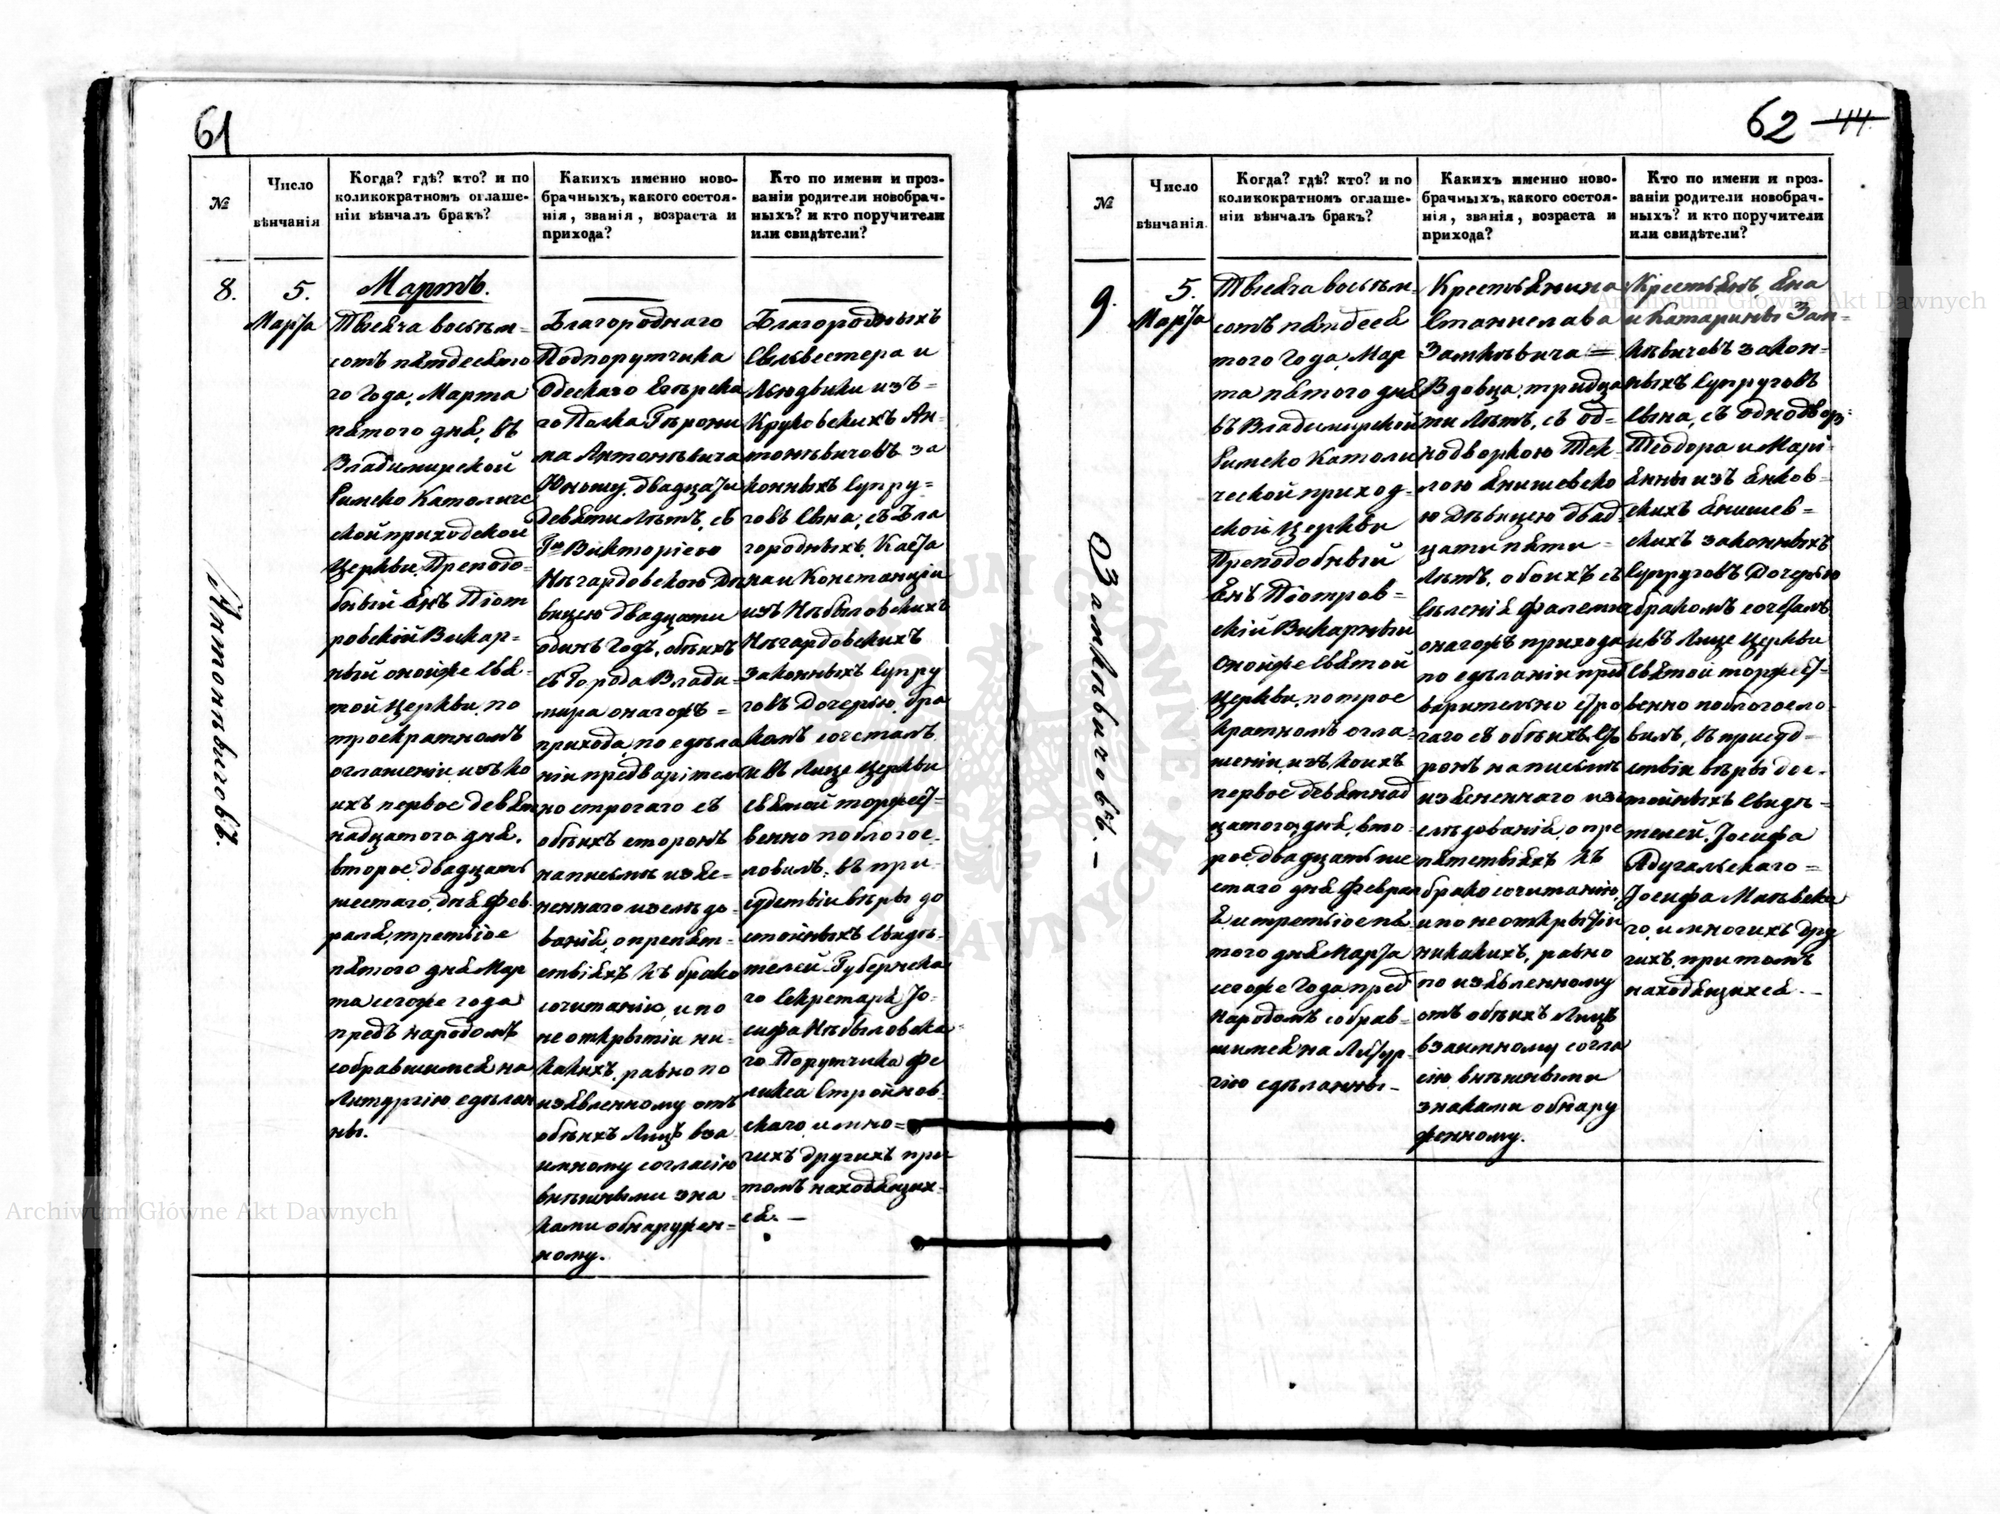 61
№
Число
вѣнчанія
Когда? гдѣ? кто? и по
коликократномъ оглаше-
ніи вѣнчалъ бракъ?
Какихъ именно ново-
брачныхъ, какого состоя-
нія, званія, возраста и
прихода?
Кто по имени и проз-
ваніи родители новобрач-
ныхъ? и кто поручители
или свидѣтели?
8.
Антоневичовъ.
5.
Марта
Мартъ.
Тысяча восьем-
сотъ пятдесято
го года, Марта
пятого дня, въ
Владимирской
Римско Католиче
ской приходской
Церкви, Преподо-
бный Янъ Піот
ровскій Викар-
ный онойже Свя-
той Церкви, по
троекратномъ
оглашеніи, изъ ко
ихъ первое девят
надцатого дня,
второе, двадцать
шестаго, дня Фев
раля, третьіое
пятого дня Мар
та сегоже года
предъ народомъ
собравшимся на
Литургію сдѣлан
ны.
Благороднаго
Подпорутчика
Одескаго Егѣрска
го Полка Гѣрони
ма Антонѣвича
Юношу, двадцати
девяти Лѣтъ, съ
Викторіею
Нѣгардовскою Дѣ
вицею двадцати
одинъ Годъ, обѣихъ
съ Города Влади-
мира онагожъ =
прихода, по сдѣла
ніи предварітель
но строгаго съ
обѣихъ сторонъ
написмѣ изяс=
неннаго изслѣдо-
ванія, о препят-
ствіяхъ къ брако
сочитанію, и по
неоткрытіи ни-
какихъ, равно по
изявленному отъ
обѣихъ Лицъ вза
имному согласію
внѣшными зна
ками обнаружен-
ному.
Благородныхъ
Сильвестера и
Людвики изъ=
Круковскихъ Ан-
тонѣвичовъ за
конныхъ Супру-
говъ Сына, съ Бла
городныхъ, Каета
на и Констанціи
изъ Нѣбыловскихъ
Нѣгардовскихъ
законныхъ Супру
говъ Дочерью, бра
комъ сочеталъ,
и въ Лице Церкви
Святой торжест-
венно поблогос-
ловилъ, въ при-
судствіи вѣры до
стойныхъ Свидѣ-
телей, Губернска
го Секретаря Іо-
сифа Нѣбыловска-
го, Порутчика Фе
ликса Стройнов-
скаго, и мно=
гихъ другихъ при
томъ находящих-
ся. —
62 44
№
Число
вѣнчанія.
Когда? гдѣ? кто? и по
коликократномъ оглаше-
ніи вѣнчалъ бракъ?
Какихъ именно ново-
брачныхъ, какого состоя-
нія, званія, возраста и
прихода?
Кто по имени и проз-
ваніи родители новобрач-
ныхъ? и кто поручители
или свидѣтели?
9.
Замкѣвичовъ. —
5.
Марта
Тысяча восьем-
сотъ пятдеся
того Года, Мар
та пятого дня
въ Владимирской
Римско Католи
ческой приход-
ской Церкви
Преподобный
Янъ Піотров=
скій Викарный
онойже Святой
Церкви, по трое
кратномъ огла-
шеніи, изъ коихъ
первое девятнад
цатого, дня, вто-
рое, двадцать ше
стаго дня Февра
я, и третьіое пя
того дня Марта
сегоже Года, пред
народомъ собрав-
шимся на Литур-
гію сдѣланны-
Крестьянина
Станислава
Замкѣвича =
Вдовца, тридца
ти Лѣтъ, съ од-
нодворкою Тек-
лою Янишевско
ю Дѣвицею двад
цати пяти =
Лѣтъ, обоихъ съ
онагожъ прихода
по сдѣланіи пред
варительно стро
гаго съ обѣихъ сто
ронъ написмѣ
изясненнаго из
слѣдованія, о пре
пятствіяхъ къ
брако сочитанію,
и по неоткрытіи
никакихъ, равно
по изявленному
отъ обѣихъ Лицъ
взаимному согла
сію внѣшными
знаками обнару
женному.
Крестьянъ Яна
и Катарины Зам=
кѣвичовъ закон-
ныхъ Супруговъ
Сына, съ однодвор=
Теодора и Марі-
янны изъ Янков-
скихъ Янишев-
скихъ законныхъ
Супруговъ Дочерью
бракомъ сочеталъ,
и въ Лице Церкви
Святой торжест-
венно поблогосло-
вилъ, въ присуд-
ствіи вѣры дос-
тойныхъ Свидѣ-
телей, Іосифа
Іосифа
го, и многихъ дру
гихъ, при томъ
находящихся. —